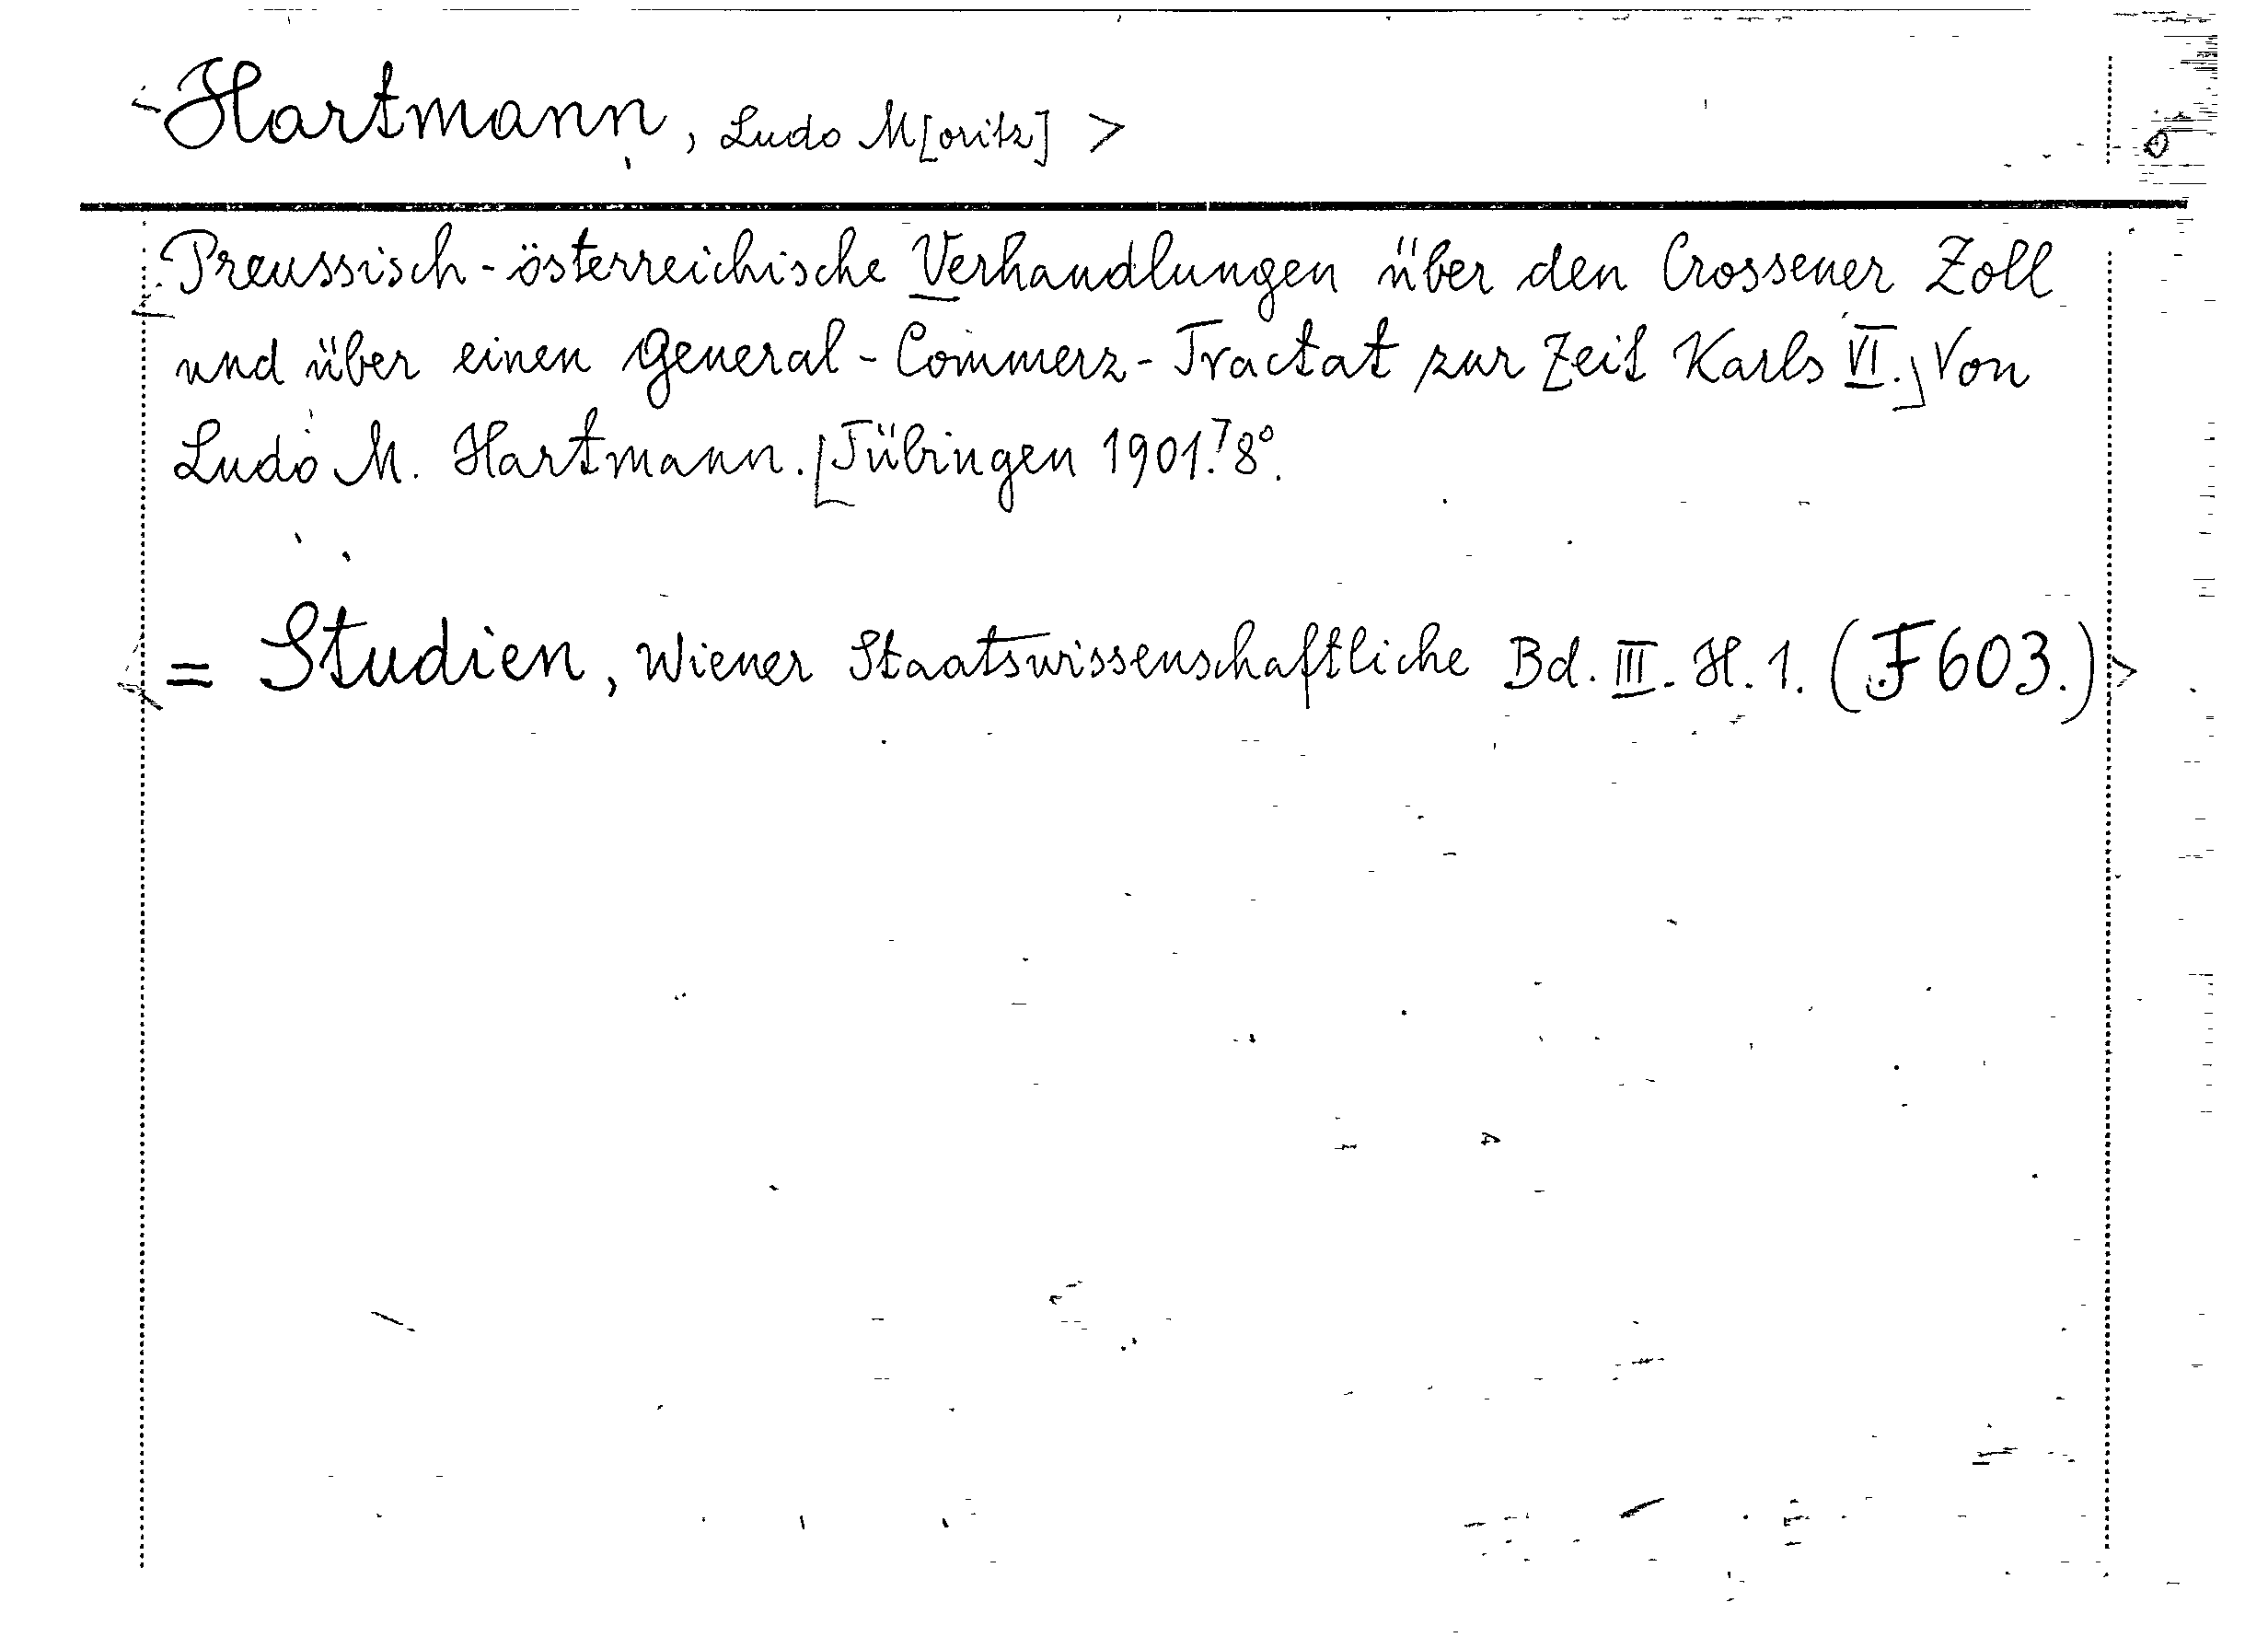 < Hartmann, Ludo M[oritz] >
Preussisch-österreichische Verhandlungen über den Crossener Zoll
und über einen General-Commerz-Tractat zur Zeit Karls VI.] Von
Ludo M. Hartmann. [Tübingen 1901.] 8°.
<= Studien, Wiener Staatswissenschaftliche Bd. III. H. 1. (F 603.)>